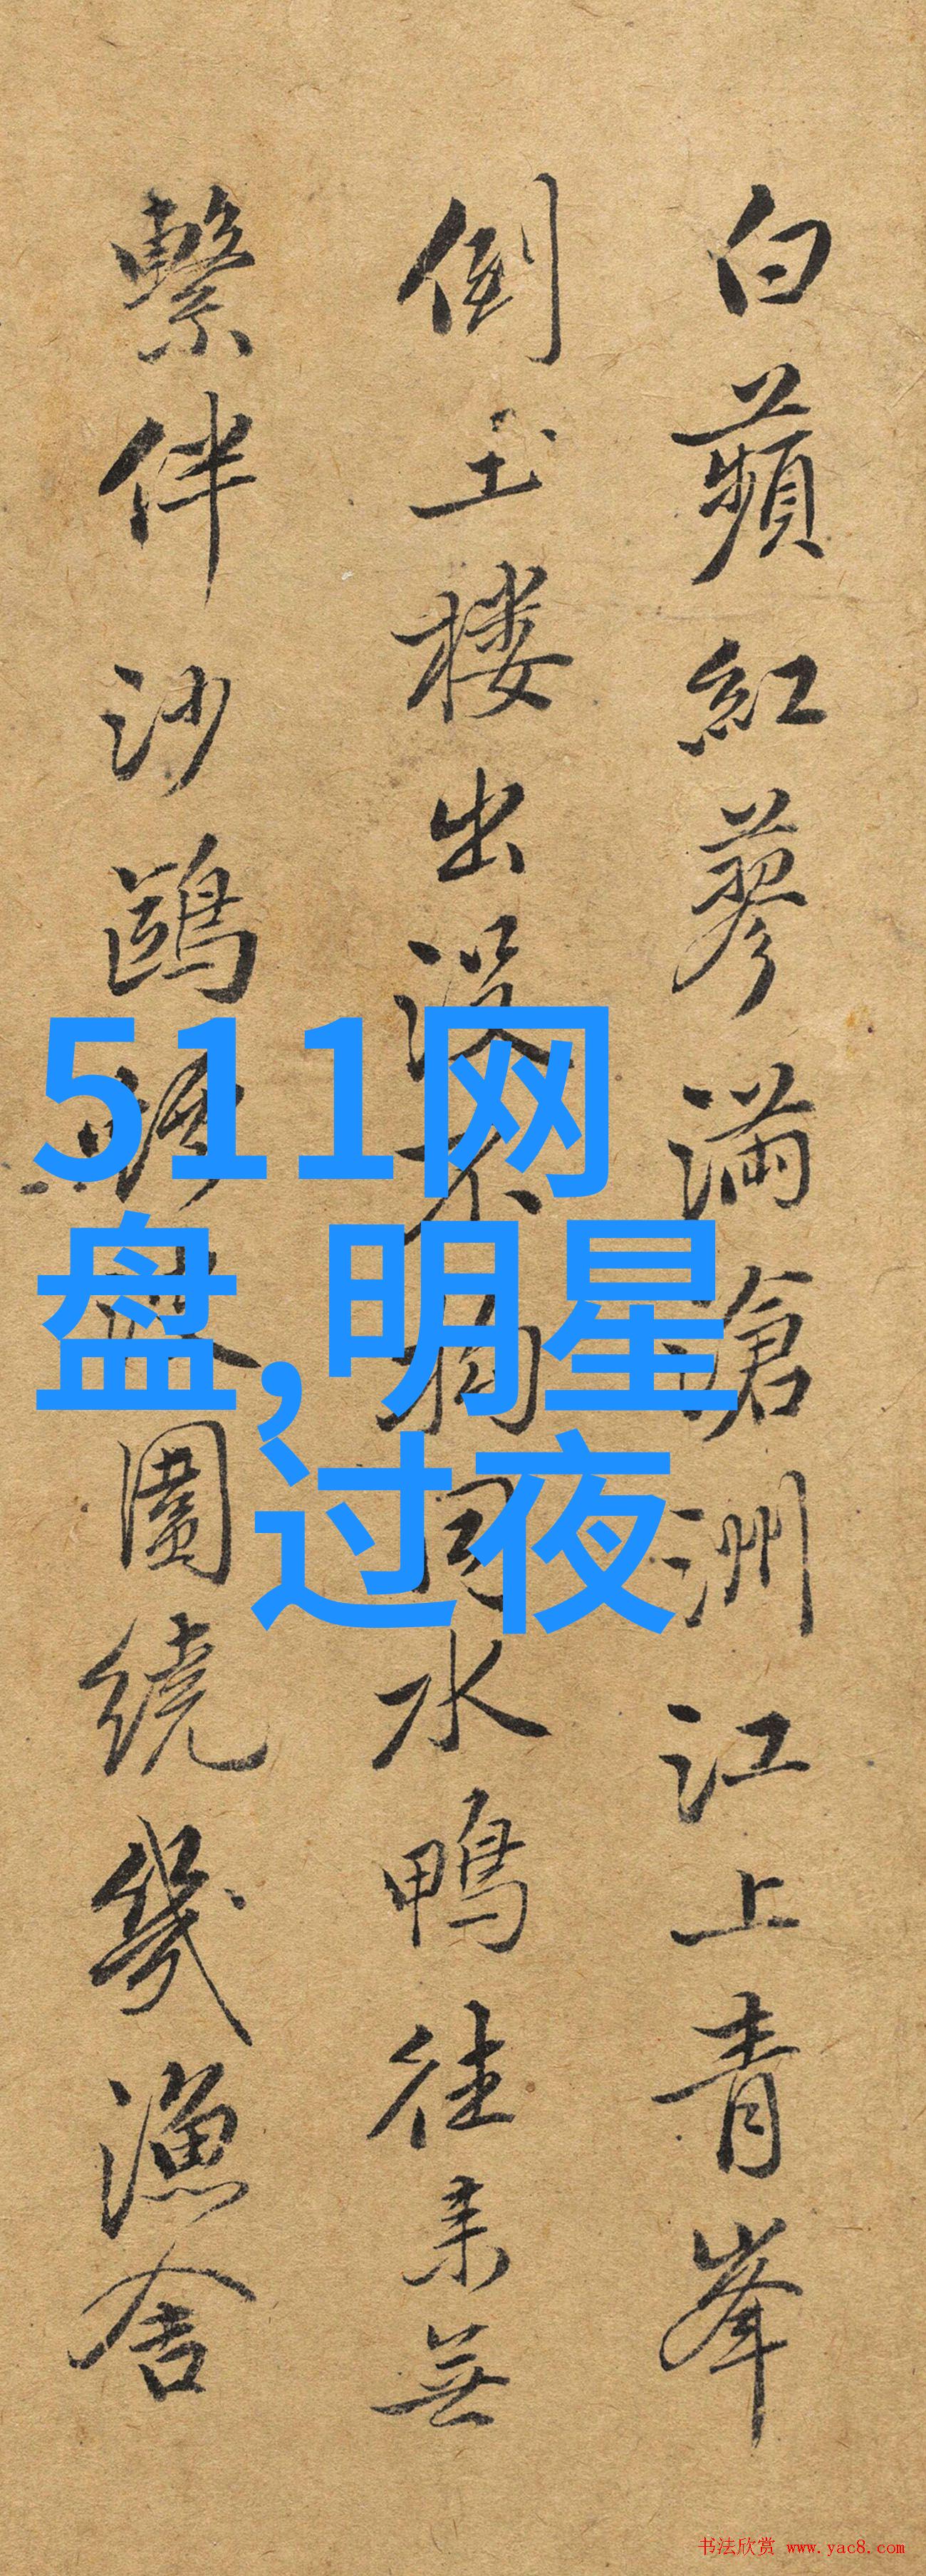 白蘋紅蓼滿滄洲江上青峯
倒玉楼出没不拘同水鴨往来無
繫伴沙鷗圍繞幾漁舍
511网
盘,明星
过夜
书法欣赏 www.yac8.com